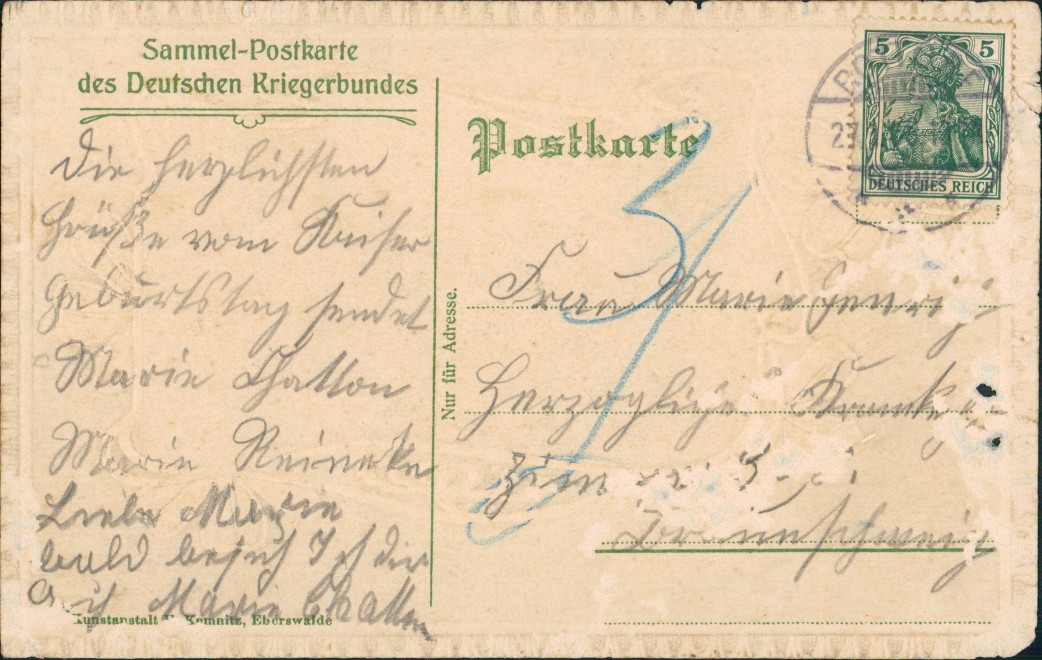 Sammel-Postkarte
des Deutschen Kriegerbundes
Die herzlichsten
Grüße vom Kaiser
Geburtstag sendet
Marie Chatton
Marie Reineke
Liebe Marie
bald besuch Ich dir
Auch Marie Chatton
Kunstanstalt Kemnitz, Eberswalde
Nur für Adresse.
Postkarte
5 5
DEUTSCHES REICH
Frau Marie
Herzogliche Kranke
Zimmer 5
Braunschweig